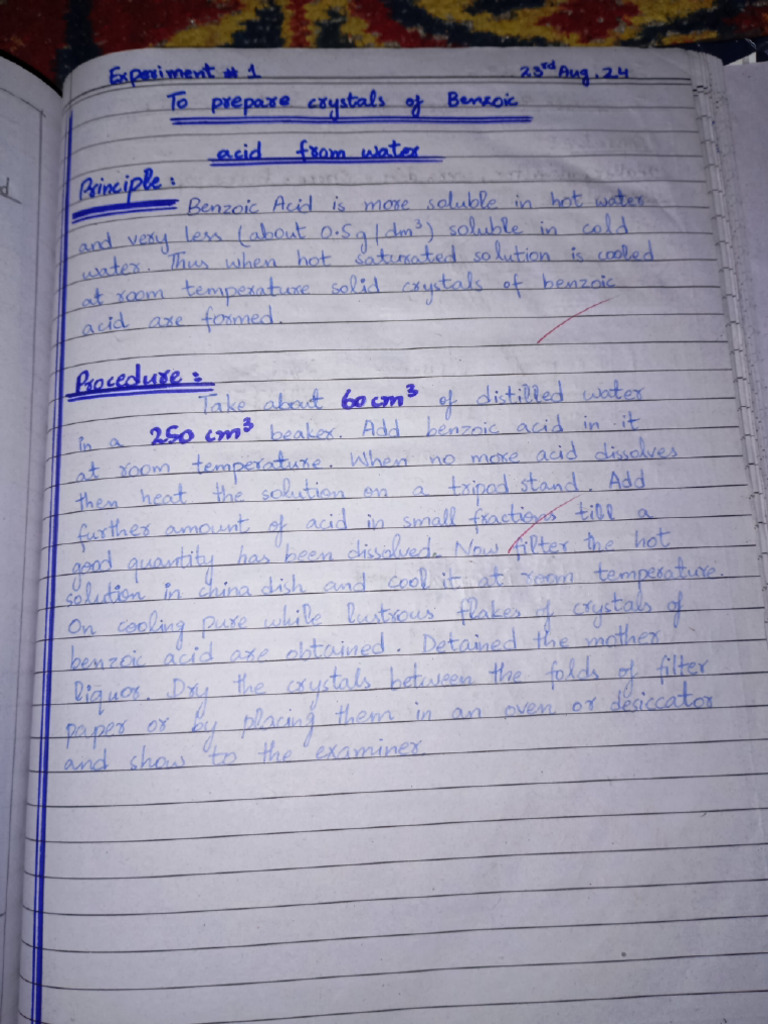 Experiment # 1
23rd Aug. 24
To prepare crystals of Benzoic
acid from water
Principle:
Benzoic Acid is more soluble in hot water
and very less (about 0.5g/dm³) soluble in cold
water. Thus when hot saturated solution is cooled
at room temperature solid crystals of benzoic
acid are formed.
Procedure:
Take about 60 cm³ of distilled water
in a 250 cm³ beaker. Add benzoic acid in it
at room temperature. When no more acid dissolves
then heat the solution on a tripod stand. Add
further amount of acid in small fractions till a
good quantity has been dissolved. Now filter the hot
solution in china dish and cool it at room temperature.
On cooling pure while lustrous flakes of crystals of
benzoic acid are obtained. Detained the mother
liquor. Dry the crystals between the folds of filter
paper or by placing them in an oven or desiccator
and show to the examiner.